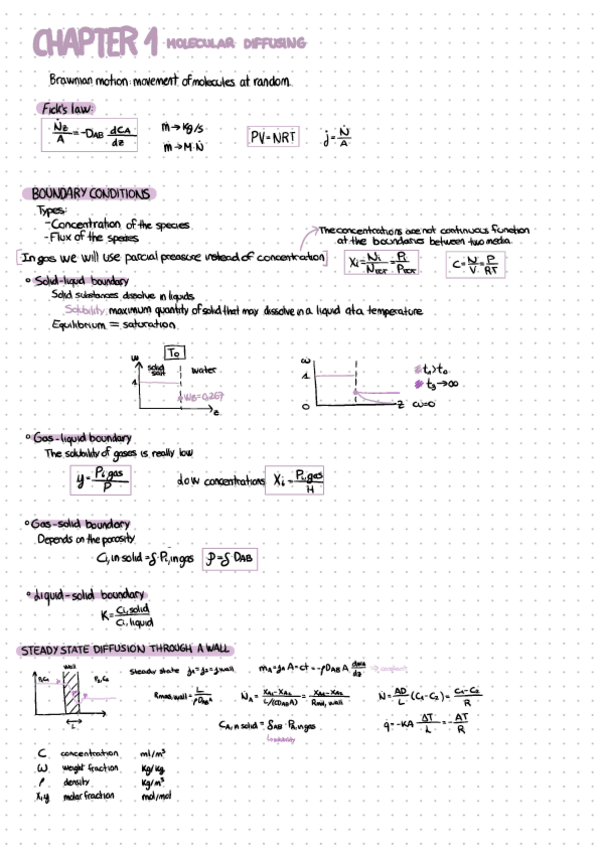 CHAPTER 1 MOLECULAR DIFFUSING
Brawnian motion: movement of molecules at random.
Fick's law:
Ṅz/A = -DAB dCA/dz
ṁ → Kg/s
ṁ → M·Ṅ
PV=NRT
j = Ṅ/A
BOUNDARY CONDITIONS
Types:
- Concentration of the species
- Flux of the species
The concentrations are not continuous function
at the boundaries between two media.
[In gas we will use parcial pressure instead of concentration]
Xi = Ni/NTOT = Pi/PTOT
C = N/V = P/RT
Solid-liquid boundary
Solid substances dissolve in liquids
Solubility: maximum quantity of solid that may dissolve in a liquid at a temperature
Equilibrium = saturation.
T0
w
solid salt
water
1
WS=0,267
z
ω
1
0
z
t1>t0
t3→∞
ω=0
Gas-liquid boundary
The solubility of gases is really low
y = Pi,gas/P
low concentrations
Xi = Pi,gas/H
Gas-solid boundary
Depends on the porosity
Ci,in solid = S·Pi,in gas
P = S·DAB
Liquid-solid boundary
K = Ci,solid/Ci,liquid
STEADY STATE DIFFUSION THROUGH A WALL
Wall
L
Steady state
constant
Rmas,wall = L/ρDABA
ṄA = XA1-XA2/L/(CDABA) = XA1-XA2/Rmd,wall
Ṅ = AD/L (C1-C2) = C1-C2/R
CA,in solid = SAB·PA,in gas
solubility
q̇ = -KA ΔT/L = -ΔT/R
C concentration ml/m³
ω weight fraction Kg/Kg
ρ density Kg/m³
X,y molar fraction mol/mol